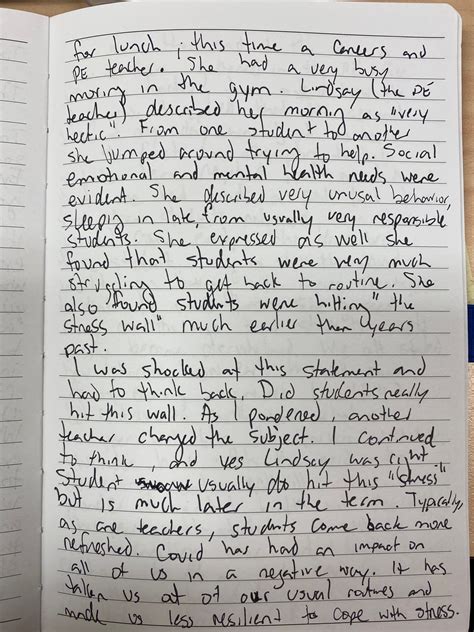 for lunch, this time a careers and
PE teacher. She had a very busy
moring in the gym. Lindsay (the PE
teacher) described her morning as "very
hectic". From one student to another
she jumped around trying to help. Social
emotional and mental health needs were
evident. She described very unusal behavior,
sleeping in late, from usually very responsible
students. She expressed as well she
found that students were very much
struggling to get back to routine. She
also found students were hitting "the
stress wall" much earlier then years
past.
I was shocked at this statement and
had to think back. Did students really
hit this wall. As I pondered, another
teacher changed the subject. I continued
to think and yes Lindsay was right
Student usually do hit this "stress"
but is much later in the term. Typically,
as are teachers, students come back more
refreshed. Covid has had an impact on
all of us in a negative way. It has
taken us at of our usual routines and
made us less resilient to cope with stress.